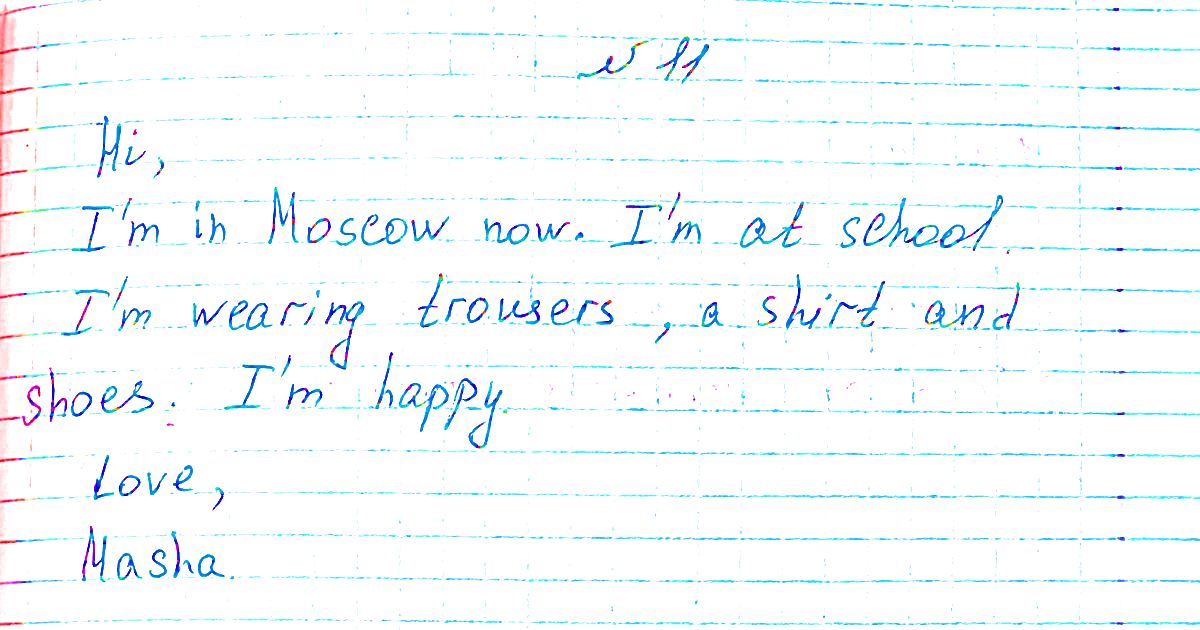 № 11
Hi,
I'm in Moscow now. I'm at school.
I'm wearing trousers, a shirt and
shoes. I'm happy.
Love,
Masha.